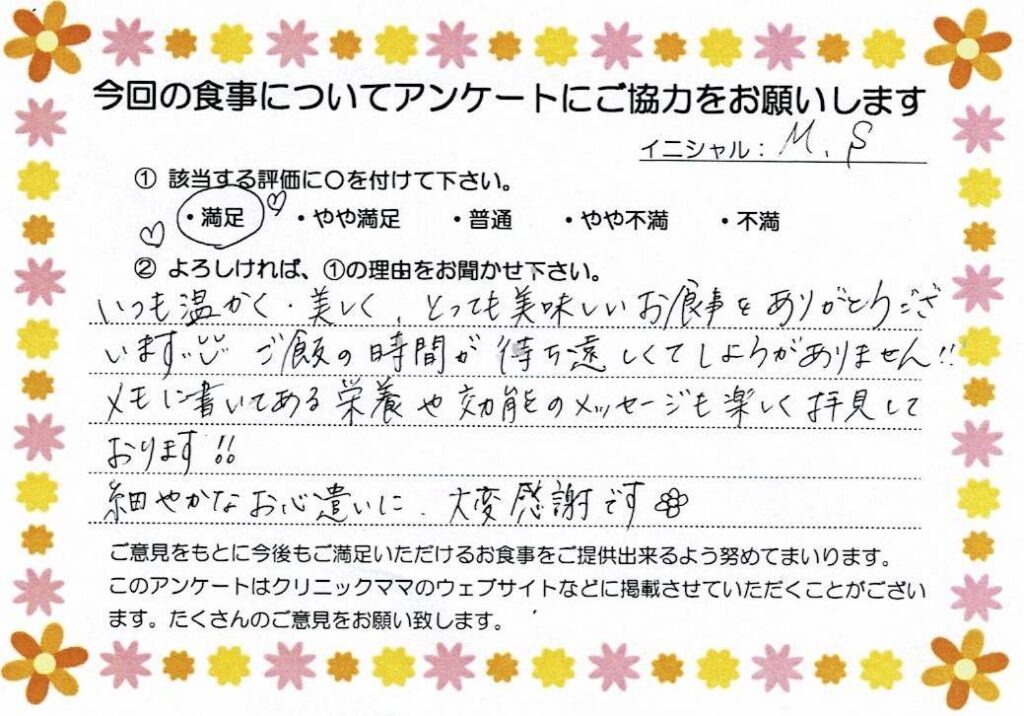 今回の食事についてアンケートにご協力をお願いします
イニシャル: M.S
① 該当する評価に〇を付けて下さい。
・満足 ・やや満足 ・普通 ・やや不満 ・不満
② よろしければ、①の理由をお聞かせ下さい。
いつも温かく・美しく、とっても美味しいお食事をありがとうござ
います ご飯の時間が待ち遠しくてしょうがありません!!
メモに書いてある栄養や効能のメッセージも楽しく拝見して
おります!!
細やかなお心遣いに、大変感謝です
ご意見をもとに今後もご満足いただけるお食事をご提供出来るよう努めてまいります。
このアンケートはクリニックママのウェブサイトなどに掲載させていただくことがござい
ます。たくさんのご意見をお願い致します。